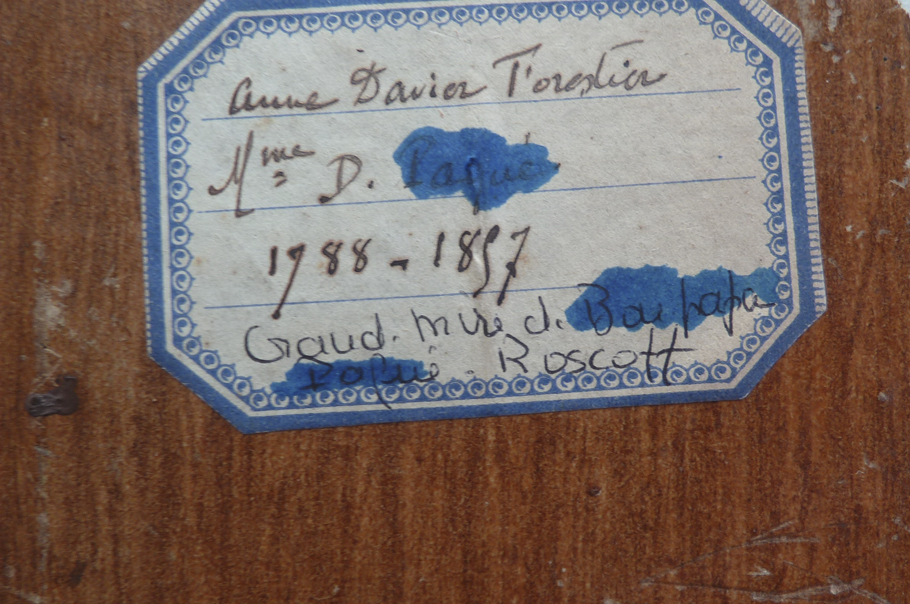 Anne Davier Forestier
Mme D. Paqué
1788 - 1857
Grand. mère d. Bon papa
Paqué. Roscott